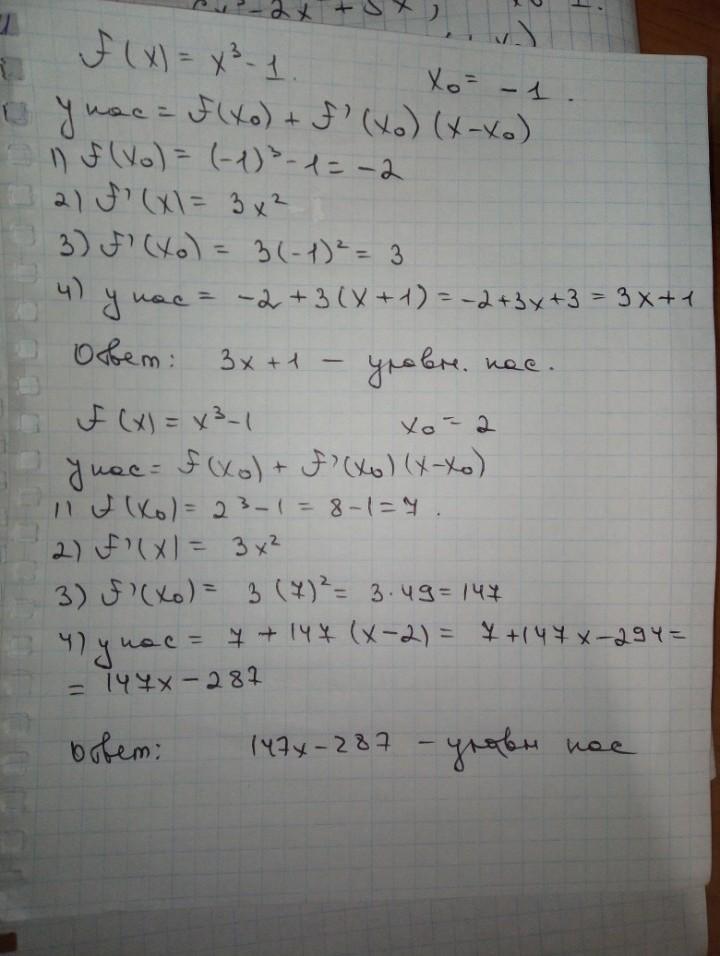 f(x) = x³ - 1. x₀ = -1.
y кас = f(x₀) + f'(x₀)(x-x₀)
1) f(x₀) = (-1)³ - 1 = -2
2) f'(x) = 3x²
3) f'(x₀) = 3(-1)² = 3
4) y кас = -2 + 3(x+1) = -2+3x+3 = 3x+1
Ответ: 3x+1 — уравн. кас.
f(x) = x³-1 x₀ = 2
y кас = f(x₀) + f'(x₀)(x-x₀)
1) f(x₀) = 2³-1 = 8-1=7.
2) f'(x) = 3x²
3) f'(x₀) = 3(7)² = 3·49=147
4) y кас = 7 + 147(x-2) = 7+147x-294=
= 147x-287
Ответ: 147x-287 — уравн кас